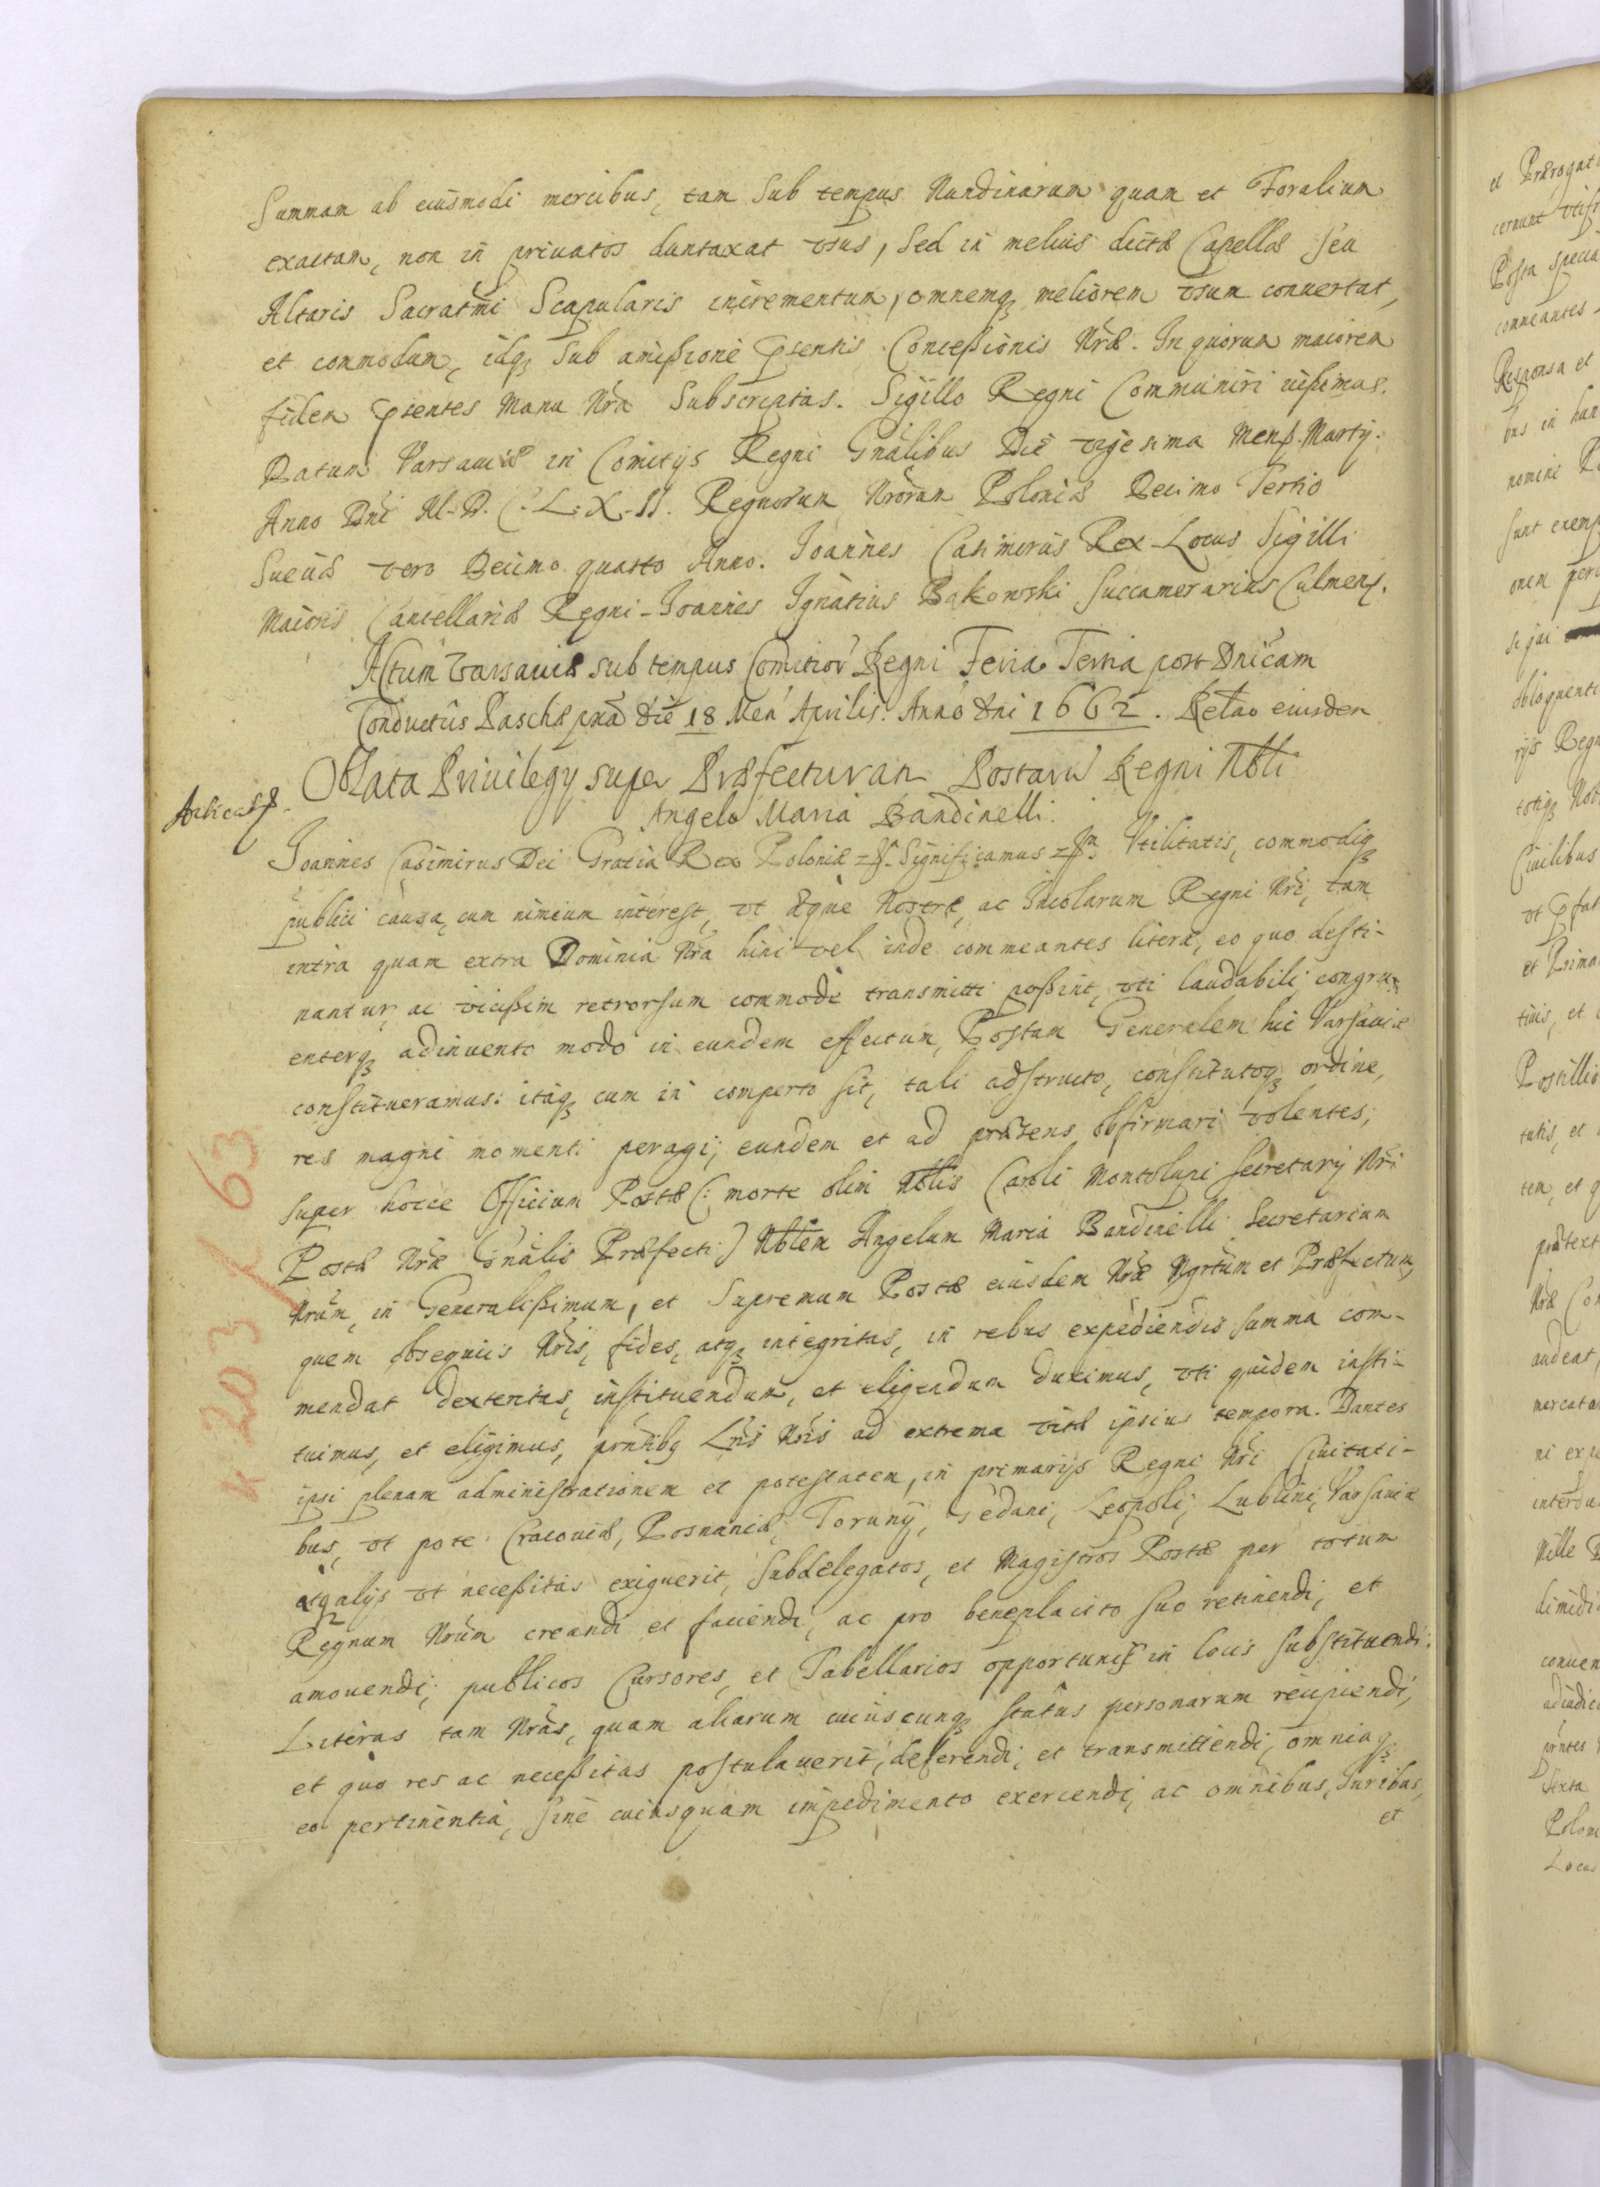 Summam ab eiusmodi mercibus, tam Sub tempus Nundinarum quam et Foralium
exactam, non in privatos duntaxat vsus, Sed in melius dictæ Capellæ seu
Altaris Sacratmi Scapularis incrementum, omnemq meliorem vsum convertat,
et commodum, idq Sub amißione pntis Conceßionis Nræ. In quorum maiorem
fidem pntes Manu Nra Subscriptas. Sigillo Regni Communiri iußimus.
Datum Varsaviæ in Comitijs Regni Gnalibus Die vigesima Mens. Martij.
Anno Dni M.D.C.L.X.II. Regnorum Nrorum Poloniæ Decimo Tertio
Sueciæ vero Decimo quarto Anno. Joannes Casimirus Rex Locus Sigilli
Maioris Cancellariæ Regni Joannes Ignatius Bąkowski Succamerarius Culmens.
Actum Varsaviæ sub tempus Comitior Regni Feria Tertia post Dnicam
Conductus Paschæ pxa die 18 Men Aprilis. Anno Dni 1662. Relao eiusdem
Oblata Privilegy super Præfecturam Postaru Regni Nbli
Angelo Maria Bandinelli.
Joannes Casimirus Dei Gratia Rex Poloniæ Significamus Vtilitatis, commodiq
publici causa, cum nimium interest, vt æque Nostræ, ac Incolarum Regni Nri, tam
intra quam extra Dominia Nra hinc vel inde commeantes literæ, eo quo desti-
nantur, ac vicißim retrorsum commode transmitti poßint, vti laudabili congru-
enterq adinvento modo in eundem effectum, Postam Generalem hic Varsaviæ
constitueramus: itaq cum in comperto sit, tali adstructo, constitutoq ordine,
res magni momenti peragi, eundem et ad præsens obfirmari volentes,
super hocce Officium Postæ (: morte olim Nblis Caroli Montelupi Secretarij Nri
Postæ Nræ Gnalis Præfecti) Nblem Angelum Maria Bandinelli Secretarium
Nrum, in Generalißimum, et Supremum Postæ eiusdem Nræ Mgrtum et Præfectum,
quem obsequiis Nris, fides, atq integritas, in rebus expediendis summa com-
mendat dexteritas, instituendum, et eligendum duximus, vti quidem insti-
tuimus, et eligimus, prntibq Lris Nris ad extrema vitæ ipsius tempora. Dantes
ipsi plenam administrationem et potestatem, in primarijs Regni Nri Civitati-
bus, vt pote Cracoviæ, Posnaniæ, Torunij, Gedani, Leopoli, Lublini, Varsaviæ
atq alijs vt neceßitas exiguerit, Subdelegatos, et Magistros Postæ per totum
Regnum Nrum creandi et faciendi, ac pro beneplacito suo retinendi, et
amovendi; publicos Cursores, et Tabellarios opportunis in locis substituendi;
Literas tam Nras, quam aliarum cuiuscunq status personarum recipiendi,
et quo res ac neceßitas postulaverit, deferendi, et transmittendi, omniaq
eo pertinentia, sine cuiusquam impedimento exercendi, ac omnibus, Juribus,
et
k 203 f 63
et Prærogati
cernunt
Posta specia
commeantes
Responsa et
nomine
sunt exemp
onem
si qui
obloquenti
rijs Regn
totiq
Civilibus
et Prima
Postillio
tutis, et
audeat,
mercato
Mille
dimidi
conven
adiudic
prntes
Sexta
Polon
Locus